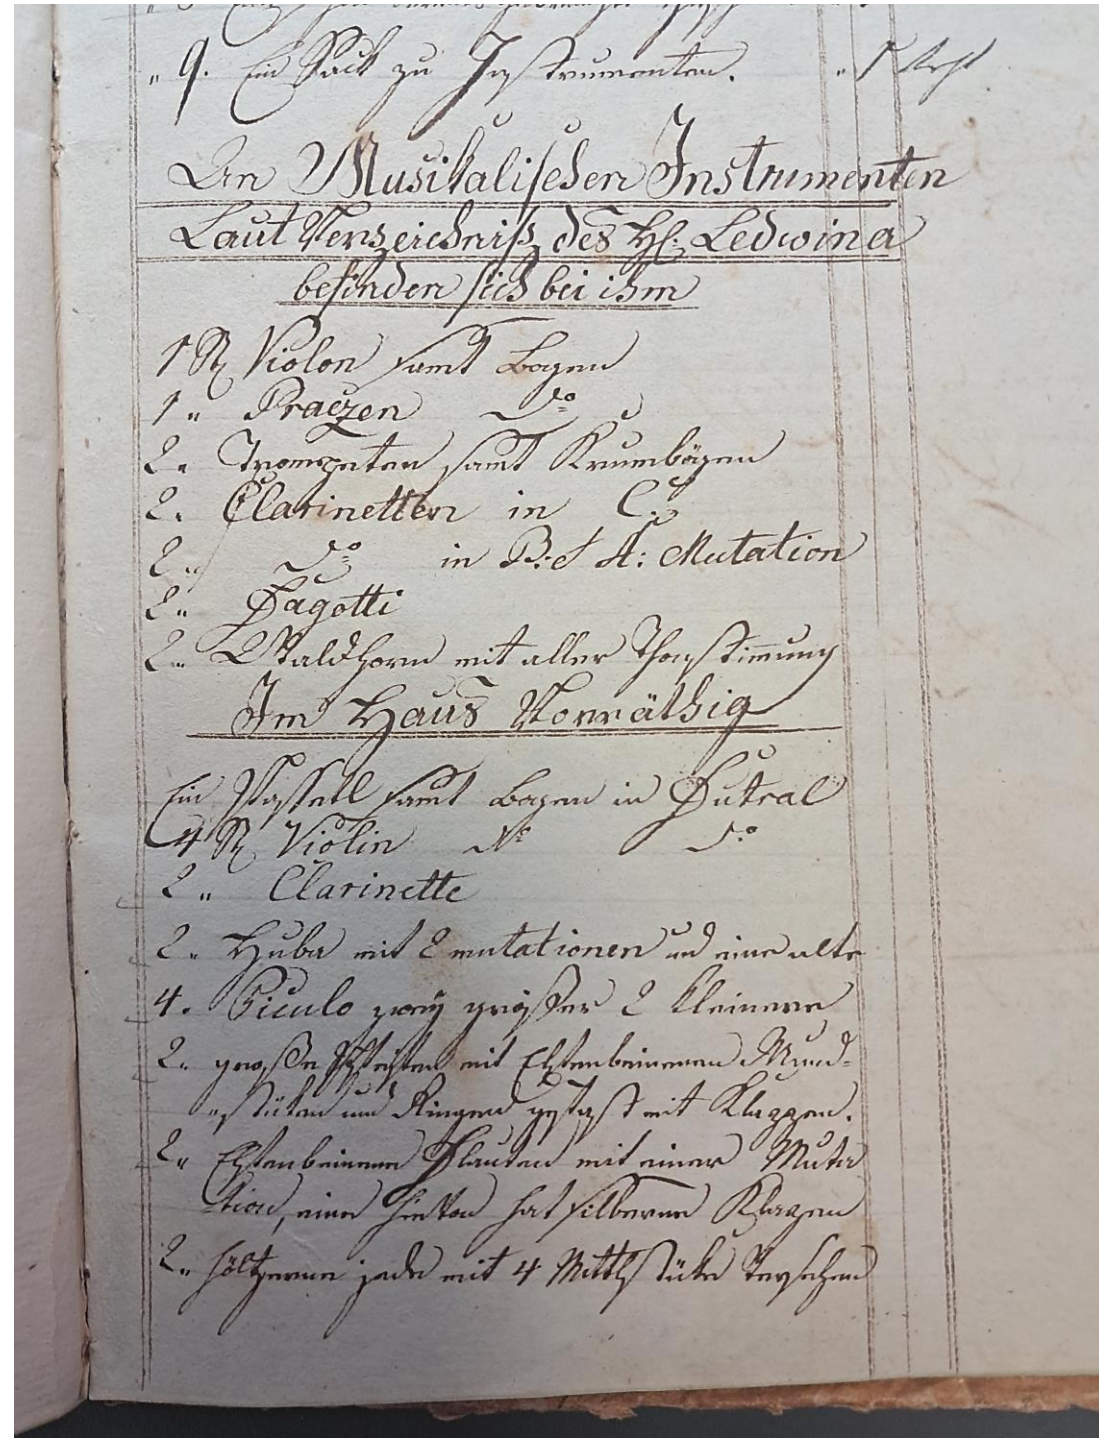 " 9. Ein Sack zu Instrumenten. " 1
An Musikalischen Instrumenten
Laut Verzeichniß des H: Ledwina
befinden sich bei ihm
1 St Violon samt Bogen
1 " Praczen do
2 " Trompeten samt Krumbögen
2 . Clarinetten in C.
2 " do in B: et A: Mutation
2 " Fagotti
2 " Waldhorn mit aller Thonstimmung
Im Haus Vorräthig
Ein Passetl samt Bogen in Futral
4 St Violin do
2 " Clarinette
2 " mit 2 mutationen und eine alte
4 . Piculo zwey größer 2 kleinere
2 . große mit Elfenbeinenen Mund-
"stüken und Ringen mit Klappen.
2 " Elfenbeinene Flauten mit einer Muta
tion, eine hat silberne Klapen
2 " höltzerne jede mit 4 Mittlstüke Versehen